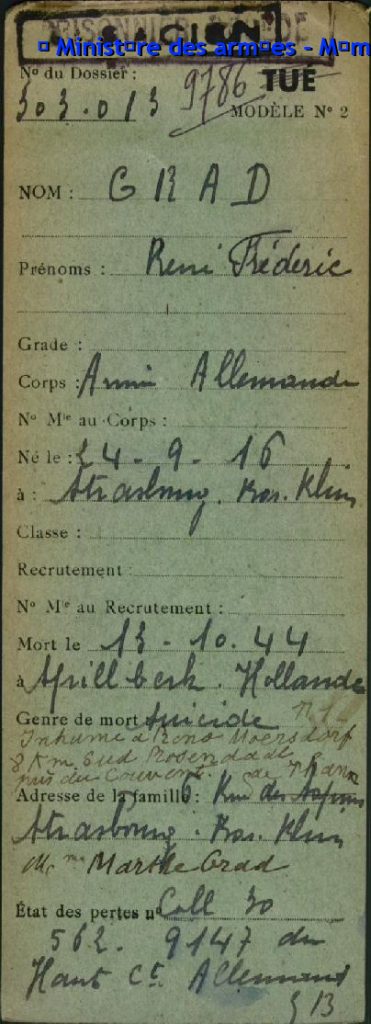 ¤ Minist¤re des arm¤es - M¤m
No du Dossier :
303.013
9786
TUÉ
MODÈLE No 2
NOM : GRAD
Prénoms : René Fréderic
Grade :
Corps : Armée Allemande
No Mle au Corps :
Né le : 24-9-16
à : Strasbourg. Bas. Rhin
Classe :
Recrutement :
No Mle au Recrutement :
Mort le 13-10.44
à Hollande
Genre de mort suicide
Inhumé à
8 Km Sud Rosendaal
près du Couvent. de
Adresse de la famille 6 Rue des
Strasbourg. Bas. Rhin
Mme Marthe Grad
État des pertes n Coll 30
562. 9147 du
Haut Ct Allemand
§ 13